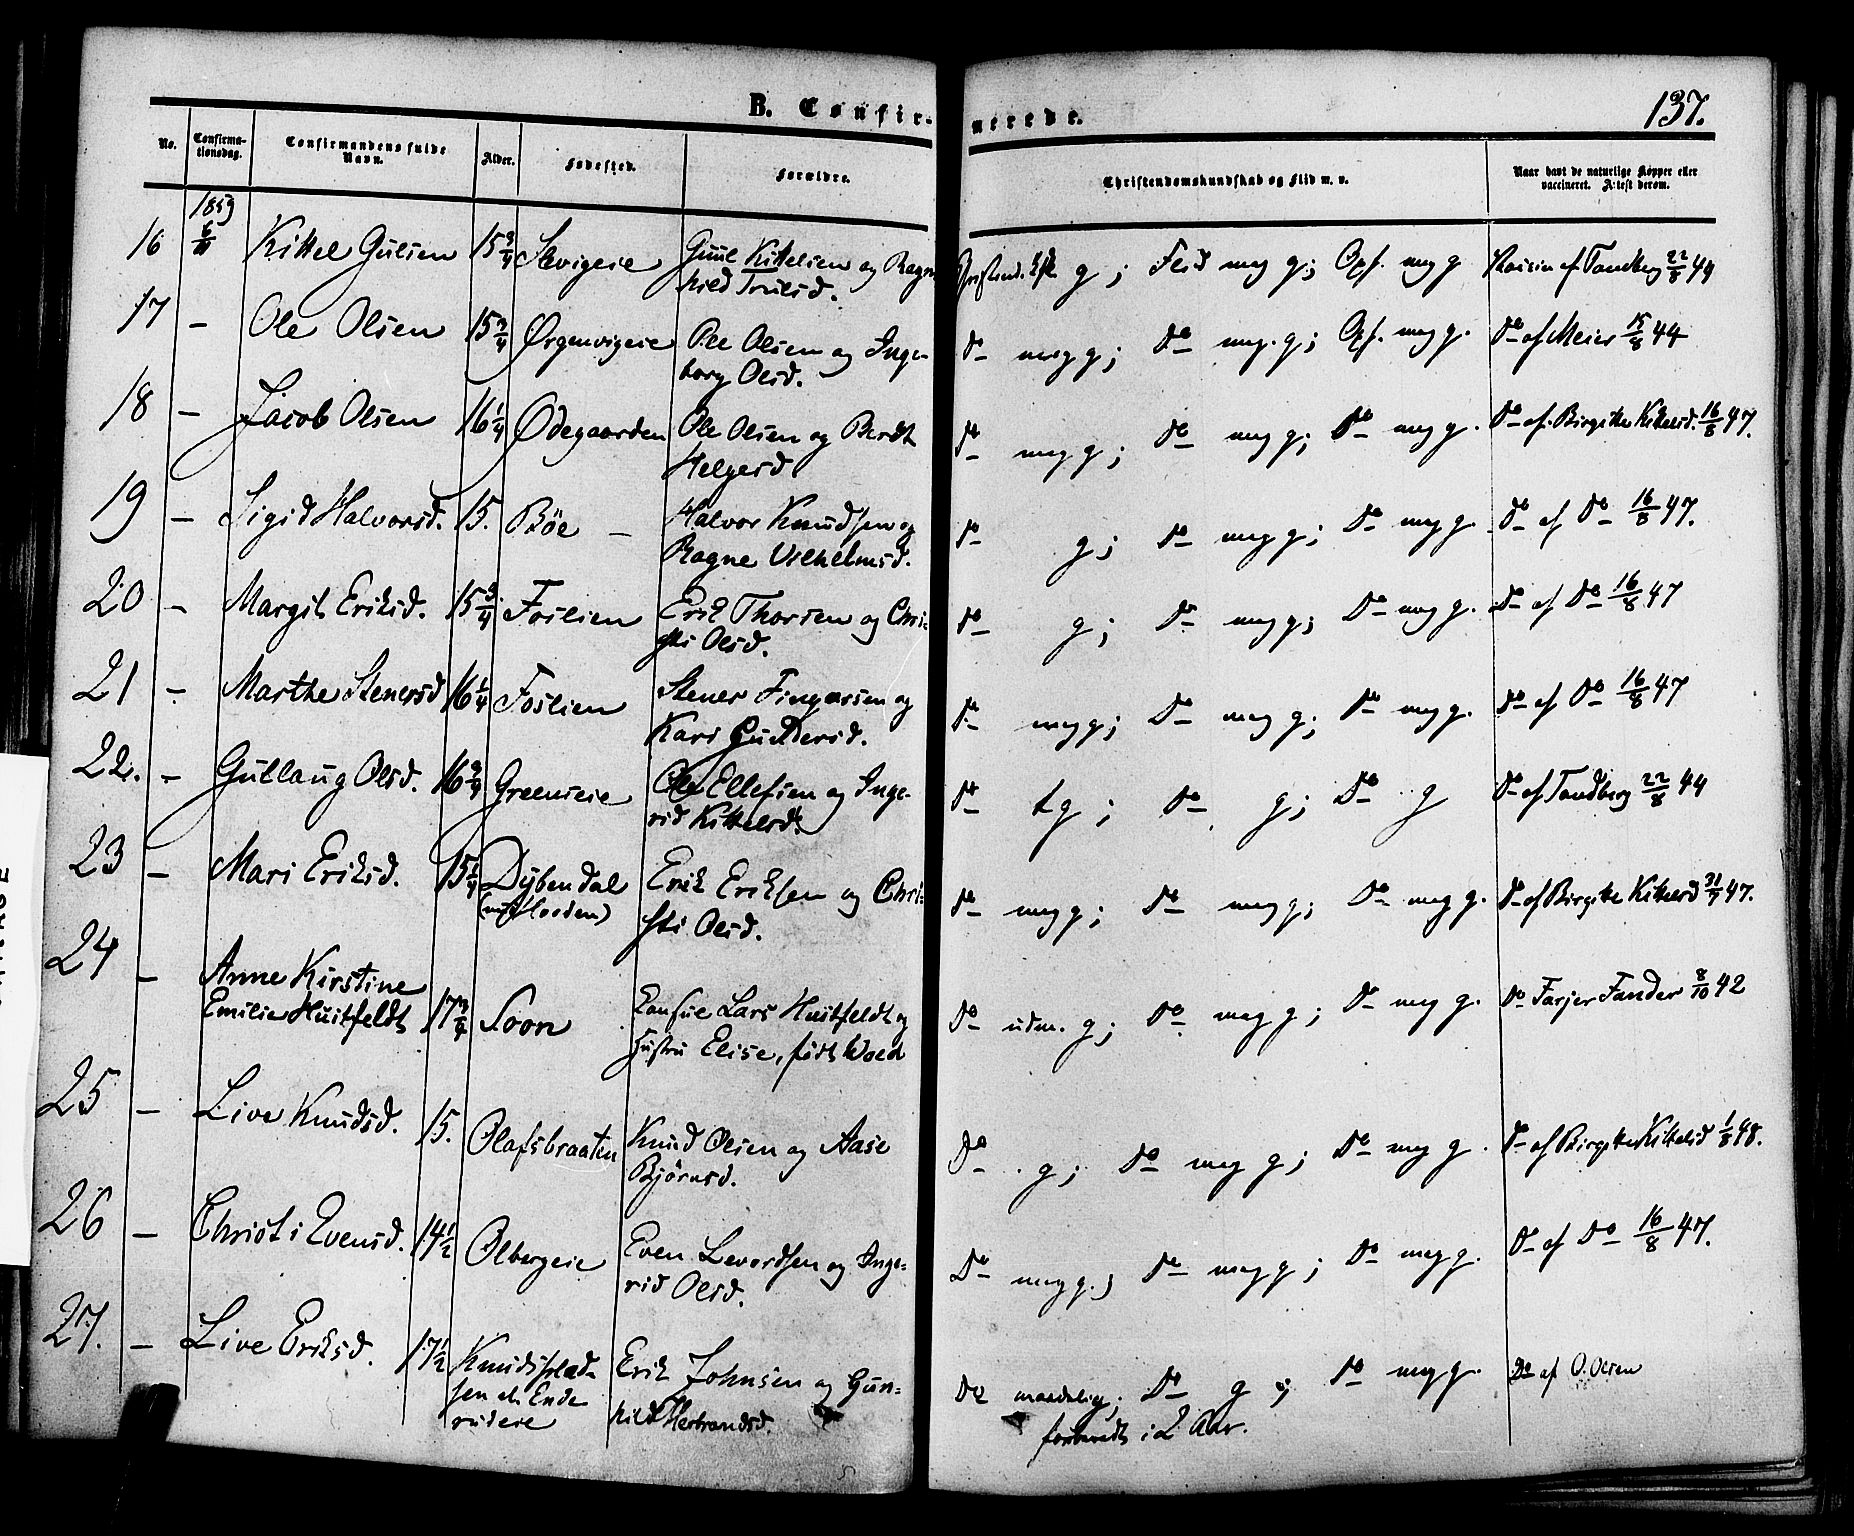 B. Confirmerede.
137.
No. Confirmationsdag. Confirmandens fulde Navn. Alder. Fødested. Forældre. Christendomskundskab og Flid m. v. Naar havt de naturlige Kopper eller vaccineret. Attest derom.
1859
16 6/11 Kittel Gulsen 15 3/4 Guul Kittelsen og Ragnhild Trulsd. g; Flid meg g; Opf. meg g af Tandberg 22/8 44
17 — Ole Olsen 15 3/4 Ørgenvigeie Ole Olsen og Ingeborg Olsd. Do meg g; Do meg. g; Opf. meg g. Do af Meier 15/8 44
18 — Jacob Olsen 16 1/4 Ødegaarden Ole Olsen og Berit Helgesd Do meg g; Do meg g; Do meg g. Do af. Birgitte Kittelsd. 16/8 47.
19 — Sigrid Halvorsd. 15. Bøe — Halvor Knudsen og Ragne Vilhelmsd. Do g; Do meg g; Do meg g. Do af Do 16/8 47.
20 — Margit Eriksd. 15 3/4 Foslien Erik Thorsen og Christi Olsd. Do g; Do meg g; Do meg g. Do af Do 16/8 47
21 — Marthe Stenersd 16 1/4 Foslien Stener Fingarsen og Kari Gulliksd. Do meg g; Do meg g; Do meg g. Do af Do 16/8 47
22. — Gullaug Olsd. 16 3/4 Greenseie Ole Ellefsen og Ingerid Kittelsd. Do tg; Do g; Do g Do af Tandberg 22/8 44
23 — Mari Eriksd. 15 1/4 Dybendal Erik Eriksen og Christi Olsd. Do meg g; Do meg g; Do meg g. Do af Birgitte Kittelsd 31/7 47.
24 — Anne Kirstine Emilie Huitfeldt 17 3/4 Soon Lars Huitfeldt og Hustru Elise, født Wold Do udm. g; Do meg g; Do meg g. Do 8/10 42
25 — Live Knudsd. 15. Olafsbraaten Knud Olsen og Aase Bjørnsd. Do g; Do meg g; Do meg g. Do af Birgitte Kittelsd 1/8 48.
26 — Christi Evensd. 14 1/2 Olbergeie Even Levordsen og Ingerid Olsd. Do meg g.; Do meg g; Do meg g. Do af Do 16/8 47.
27. — Live Eriksd. 17 1/2 Knudspladsen et. Enderudeie Erik Johnsen og Gunhild Herbrandsd. Do maadelig; Do g; Do meg g. Do af O. Olsen
forberedt i 2 Aar.